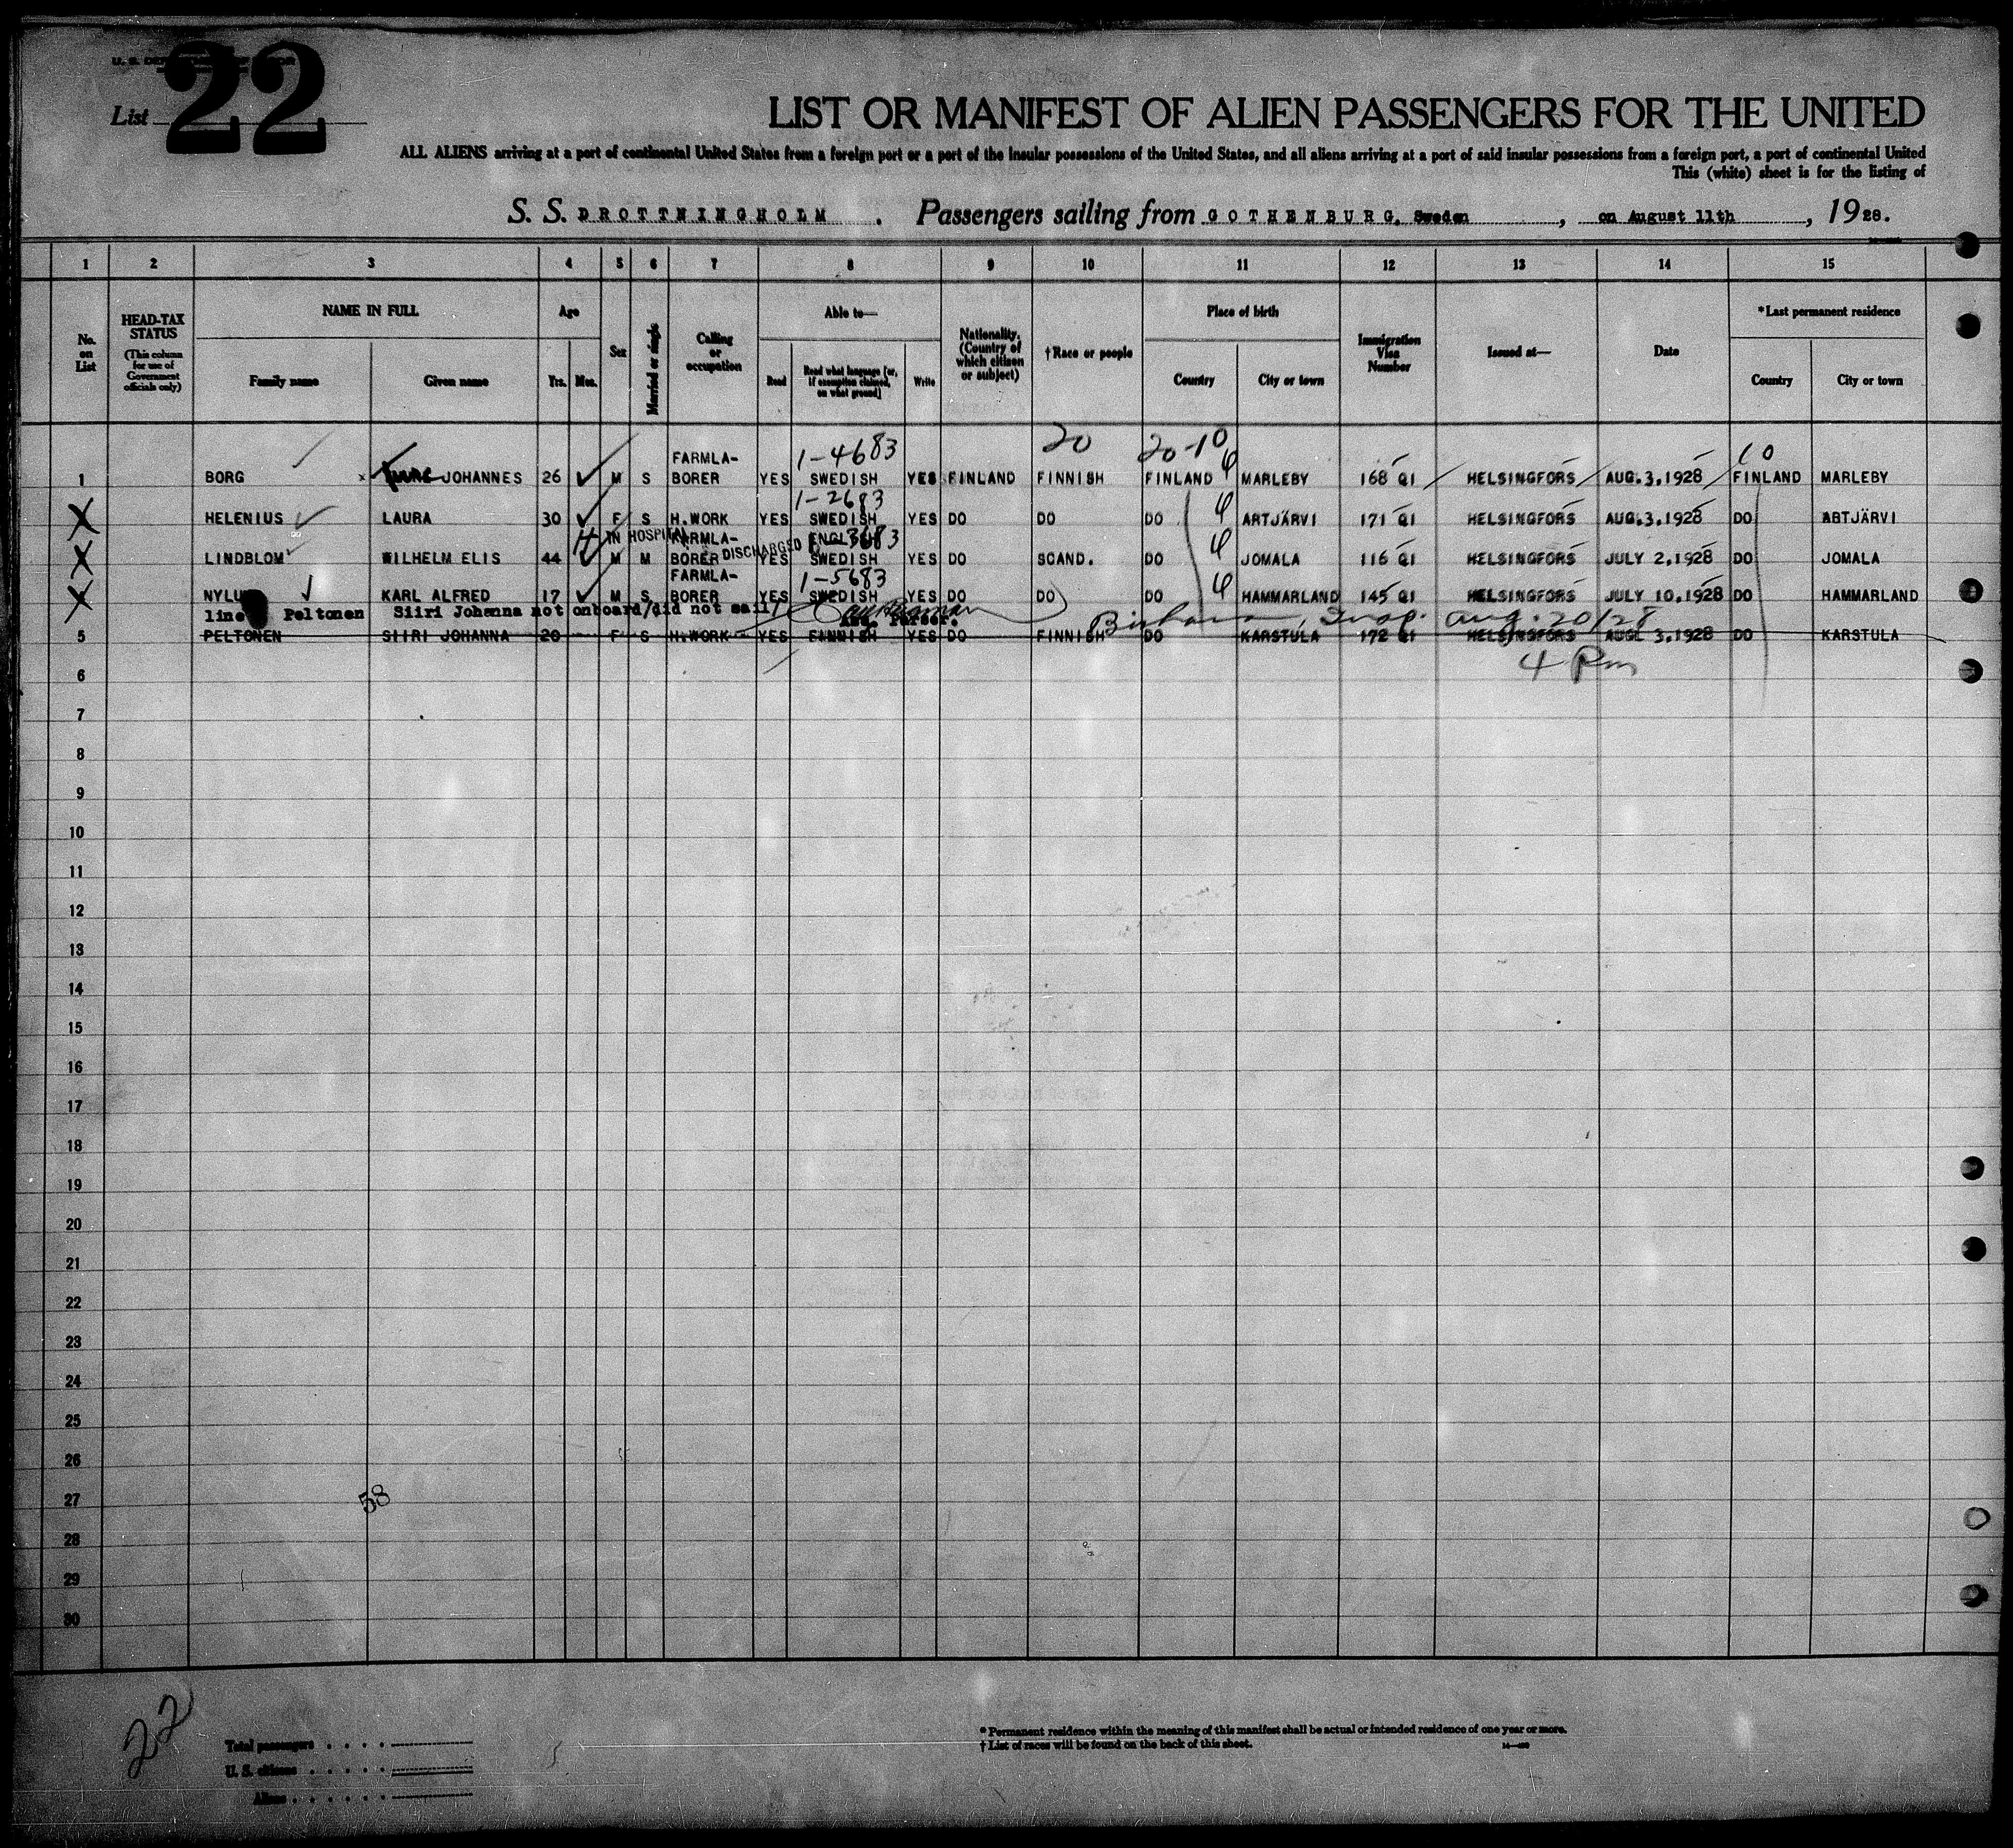 22
List
LIST OR MANIFEST OF ALIEN PASSENGERS FOR THE UNITED
ALL ALIENS arriving at a port of continental United States from a foreign port or a port of the insular possessions of the United States, and all aliens arriving at a port of said insular possessions from a foreign port, a port of continental United
This (white) sheet is for the listing of
S. S. DROTTNINGHOLM . Passengers sailing from GOTHENBURG, Sweden , on August 11th , 1928.
1 2 3 4 5 6 7 8 9 10 11 12 13 14 15
No. on List
HEAD-TAX STATUS (This column for use of Government officials only)
NAME IN FULL
Family name Given name
Age
Yrs. Mos.
Sex
Married or single
Calling or occupation
Able to—
Read Read what language [or, if exemption claimed, on what ground] Write
Nationality. (Country of which citizen or subject)
†Race or people
Place of birth
Country City or town
Immigration Visa Number
Issued at—
Date
*Last permanent residence
Country City or town
1-4683 20 20-10
1 BORG JOHANNES 26 M S FARMLA-BORER YES SWEDISH YES FINLAND FINNISH FINLAND MARLEBY 168 QI HELSINGFORS AUG.3.1928 FINLAND MARLEBY
1-2683
HELENIUS LAURA 30 F S H.WORK YES SWEDISH YES DO DO DO ARTJÄRVI 171 QI HELSINGFORS AUG.3.1928 DO ARTJÄRVI
IN HOSPITAL DISCHARGED
LINDBLOM WILHELM ELIS 44 M M FARMLA-BORER YES SWEDISH YES DO SCAND. DO JOMALA 116 QI HELSINGFORS JULY 2.1928 DO JOMALA
1-5683
KARL ALFRED 17 M S FARMLA-BORER YES SWEDISH YES DO DO DO HAMMARLAND 145 QI HELSINGFORS JULY 10.1928 DO HAMMARLAND
line Peltonen Siiri Johanna not onboard/did not sail/ Purser. Insp. Aug. 20/28
5 PELTONEN SIIRI JOHANNA 20 F S H.WORK YES FINNISH YES DO FINNISH DO KARSTULA 172 QI HELSINGFORS AUG. 3.1928 DO KARSTULA
4 Pm
6
7
8
9
10
11
12
13
14
15
16
17
18
19
20
21
22
23
24
25
26
27
58
28
29
30
22
Total passengers
U. S. citizens
Aliens
* Permanent residence within the meaning of this manifest shall be actual or intended residence of one year or more.
† List of races will be found on the back of this sheet.